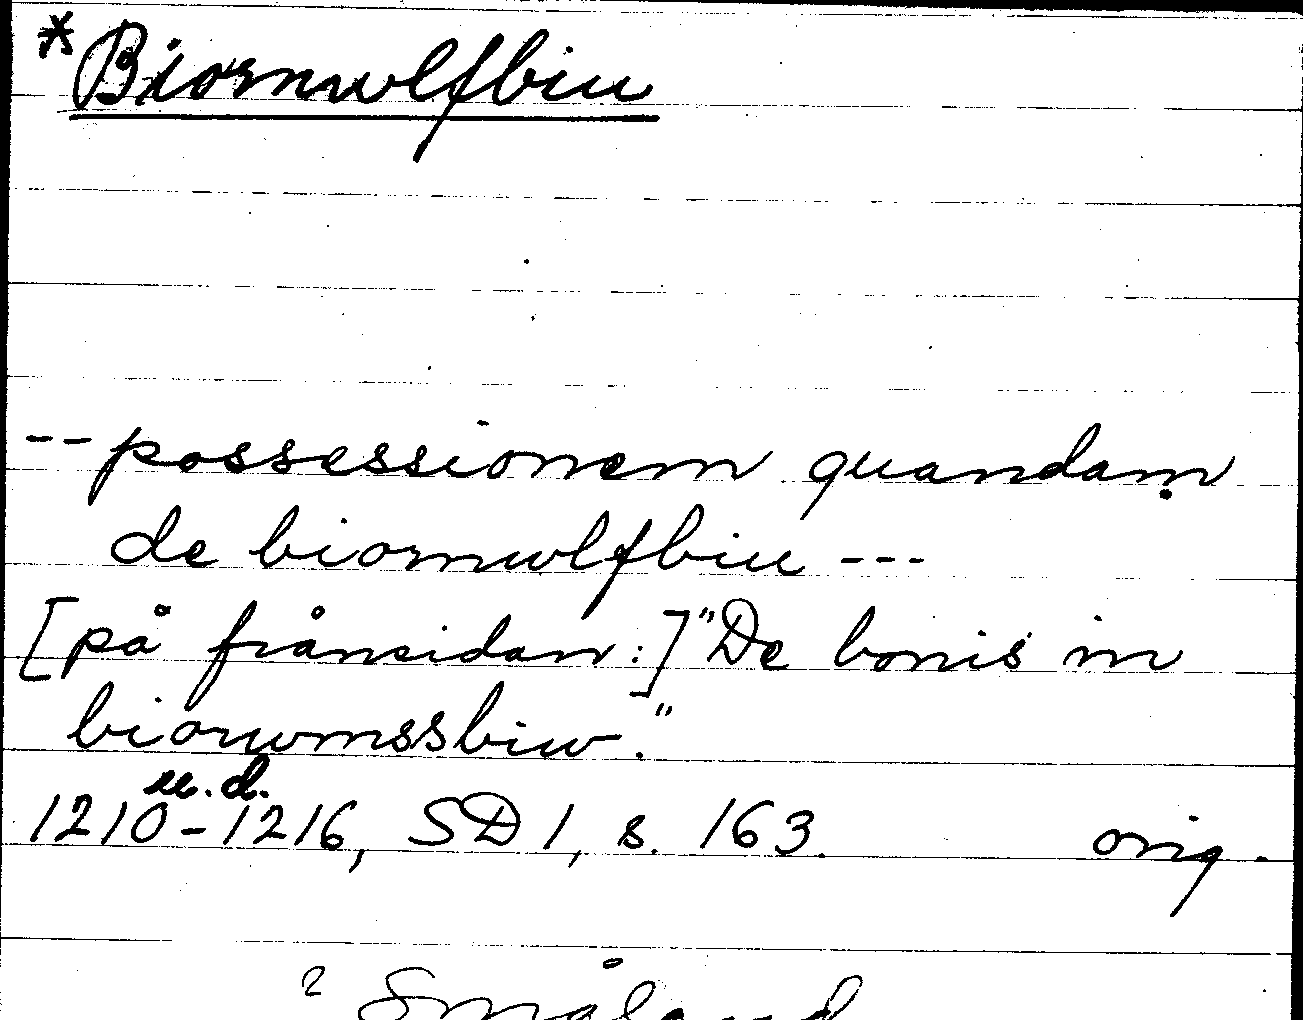 *Biornwlfbiu
-- possessionem quandam
de biornwlfbiu ---
[på frånsidan:] "De bonis in
biorwmssbiw."
u.d.
1210-1216, SD 1, s. 163. orig.
? Småland